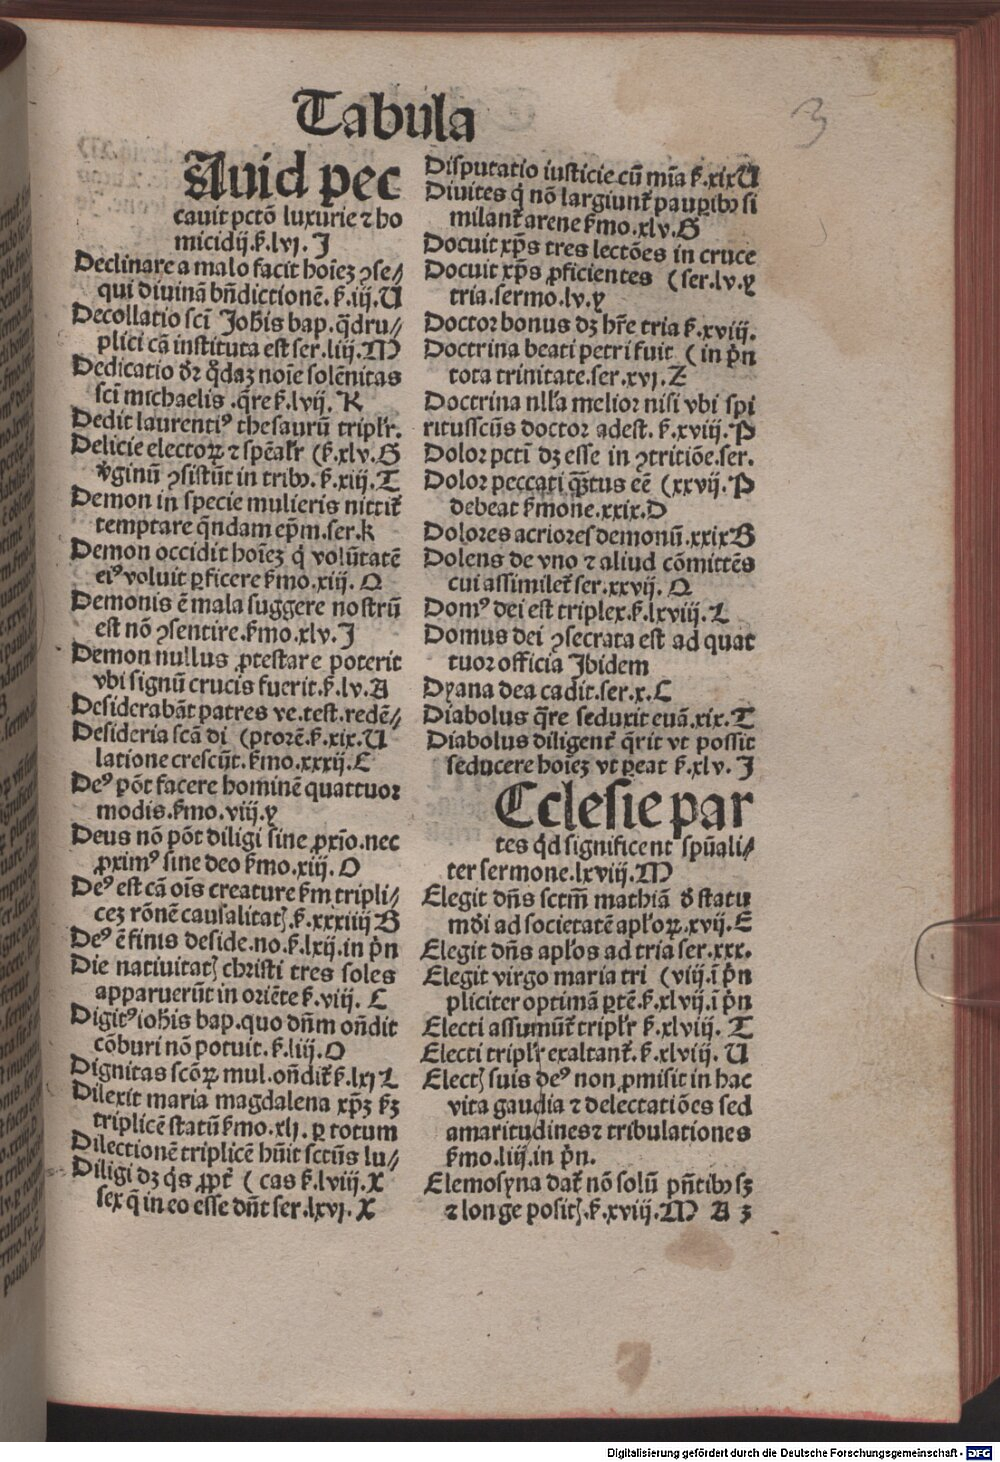 Tabula
3
Auid pec
cauit pctō luxurie ⁊ ho
micidij.ẜ.lvj. J
Declinare a malo facit hoīeꝫ ꝯse⸗
qui diuinā bn̄dictionē. ẜ.iij.U
Decollatio sci̅ Joh̄is bap.q̄dru⸗
plici cā instituta est ser.liij.M
Dedicatio ꝺ̄r q̄daꝫ noīe solēnitas
sci̅ michaelis .q̄re ẜ.lvij. K
Dedit laurentiꝰ thesaurū tripl̄r.
Delicie electoꝝ ⁊ spēal̄r (ẜ.xlv.G
v̄ginū ꝯsistūt in tribꝰ. ẜ.xiij.T
Demon in specie mulieris nittit̄
temptare q̄ndam ep̄m.ser.k
Demon occidit hoīeꝫ q̄ volūtatē
eiꝰ voluit ꝑficere ẜmo.xiij. Q
Demonis ē mala suggere nostrū
est nō ꝯsentire.ẜmo.xlv.J
Demon nullus ꝓtestare poterit
vbi signū crucis fuerit.ẜ.lv.A
Desiderabāt patres ve.test.redē⸗
Desideria scā di (ptorē.ẜ.xix.U
latione crescūt.ẜmo.xxxij.C
Deꝰ pōt facere hominē quattuor
modis.ẜmo.viij.y
Deus nō pōt diligi sine ꝓxīo.nec
ꝓximꝰ sine deo ẜmo.xiij. O
Deꝰ est cā oīs creature ẜm tripli⸗
ceꝫ rōnē causalitatꝭ.ẜ.xxxiiij B
Deꝰ ē finis deside.no.ẜ.lxij.in p̄n
Die natiuitatꝭ christi tres soles
apparuerūt in oriēte ẜ.viij. C
Digitꝰ ioh̄is bap.quo dn̄m on̄dit
cōburi nō potuit.ẜ.liij.O
Dignitas scōꝝ mul.on̄dit̄ ẜ.lxj L
Dilexit maria magdalena xp̄ꝫ ẜꝫ
triplicē statū ẜmo.xlj. ꝑ totum
Dilectionē triplicē hūit sctūs lu⸗
Diligi dꝫ q̄s ꝓpt̄ (cas ẜ.lviij.X
sex q̄ in eo esse dn̄t ser.lxvj. X
Disputatio iusticie cū mīa ẜ.xix U
Diuites q̄ nō largiunt̄ pauꝑibꝰ si
milant̄ arene ẜmo.xlv.G
Docuit xp̄s tres lectōes in cruce
Docuit xp̄s ꝓficientes (ser.lv.y
tria.sermo.lv.y
Doctor bonus dꝫ hr̄e tria ẜ.xviij.
Doctrina beati petri fuit (in p̄n
tota trinitate.ser.xvj.Z
Doctrina nll̄a melior nisi vbi spi
ritusscūs doctor adest. ẜ.xviij.P
Dolor pcti̅ dꝫ esse in ꝯtritiōe.ser.
Dolor peccati q̄ntus eē (xxvij.P
debeat ẜmone.xxix.D
Dolores acriores demonū.xxix B
Dolens de vno ⁊ aliud cōmittēs
cui assimilet̄ ser.xxvij. Q
Domꝰ dei est triplex.ẜ.lxviij.L
Domus dei ꝯsecrata est ad quat
tuor officia Jbidem
Dyana dea cadit.ser.x.C
Diabolus q̄re seduxit euā.xix.T
Diabolus diligent̄ q̄rit vt possit
seducere hoīeꝫ vt ꝑeat ẜ.xlv.J
Ecclesie par
tes q̄d significent spūali⸗
ter sermone.lxviij.M
Elegit dn̄s sctm̄ mathiā ꝺ̄ statu
mdi̅ ad societatē apl̄oꝝ.xvij.E
Elegit dn̄s apl̄os ad tria ser.xxx.
Elegit virgo maria tri (viij.ī p̄n
pliciter optimā ꝑtē.ẜ.xlvij.ī p̄n
Electi assumūt̄ tripl̄r ẜ.xlviij. T
Electi tripl̄r exaltant̄.ẜ.xlviij. U
Electꝭ suis deꝰ non ꝓmisit in hac
vita gaudia ⁊ delectatiōes sed
amaritudines ⁊ tribulationes
ẜmo.liij.in p̄n.
Elemosyna dat̄ nō solū pn̄tibꝰ sꝫ
⁊ longe positꝭ.ẜ.xviij.M A 3
Digitalisierung gefördert durch die Deutsche Forschungsgemeinschaft - DFG